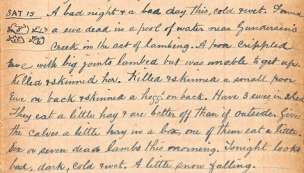 SAT 15 A bad night & a bad day this, cold & wet. Found
a ewe dead in a pool of water near Gunderson's
Creek in the act of lambing. A poor crippled
Ewe with big joints lambed but was unable to get up.
Killed & skinned her. Killed & skinned a small poor
Ewe on back & skinned a on back. Have 3 ewes in shed
They eat a little hay & are better off than if outside. Give
the calves a little hay in a box, one of them eat a little
six or seven dead lambs this morning. Tonight looks
bad, dark, cold & wet. A little snow falling.